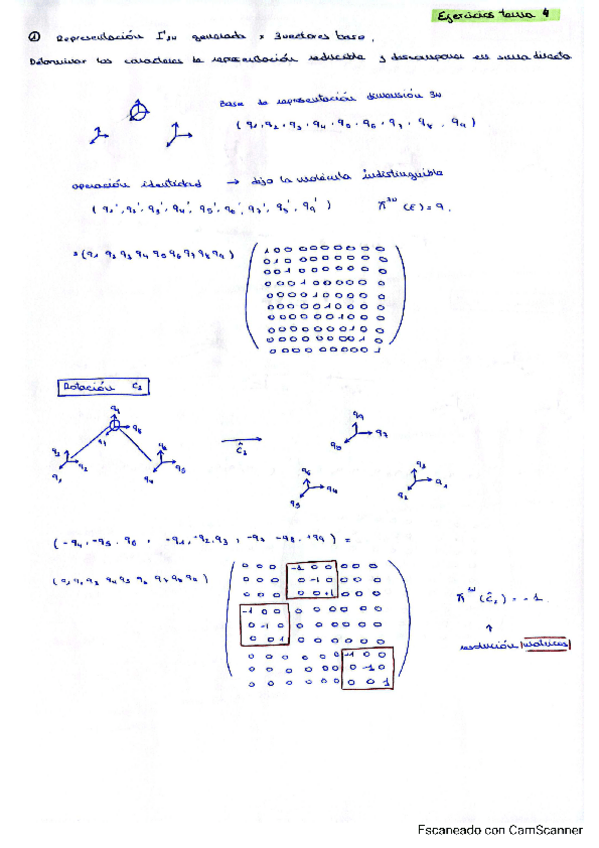 Ejercicios tema 4
① Representación Γ3N generada x 3 vectores base.
Determinar los caracteres la representación reducible y descomponer en suma directa
Base de representación dimensión 3N
( q1, q2, q3, q4, q5, q6, q7, q8, q9 )
operación identidad → dejo la molécula indistinguible
( q1', q2', q3', q4', q5', q6', q7', q8', q9' ) (E) = 9.
= ( q1 q2 q3 q4 q5 q6 q7 q8 q9 )
1 0 0 0 0 0 0 0 0
0 1 0 0 0 0 0 0 0
0 0 1 0 0 0 0 0 0
0 0 0 1 0 0 0 0 0
0 0 0 0 1 0 0 0 0
0 0 0 0 0 1 0 0 0
0 0 0 0 0 0 1 0 0
0 0 0 0 0 0 0 1 0
0 0 0 0 0 0 0 0 1
Rotación C2
q9 q8 q7
q3 q2 q1
q6 q5 q4
Ĉ2
q9 q7 q8
q6 q4 q5
q3 q1 q2
( -q4, -q5, q6, -q1, -q2, q3, -q7, -q8, +q9 ) =
( q1 q2 q3 q4 q5 q6 q7 q8 q9 )
0 0 0 -1 0 0 0 0 0
0 0 0 0 -1 0 0 0 0
0 0 0 0 0 +1 0 0 0
-1 0 0 0 0 0 0 0 0
0 -1 0 0 0 0 0 0 0
0 0 1 0 0 0 0 0 0
0 0 0 0 0 0 -1 0 0
0 0 0 0 0 0 0 -1 0
0 0 0 0 0 0 0 0 1
(Ĉ2) = -1
↑
Escaneado con CamScanner